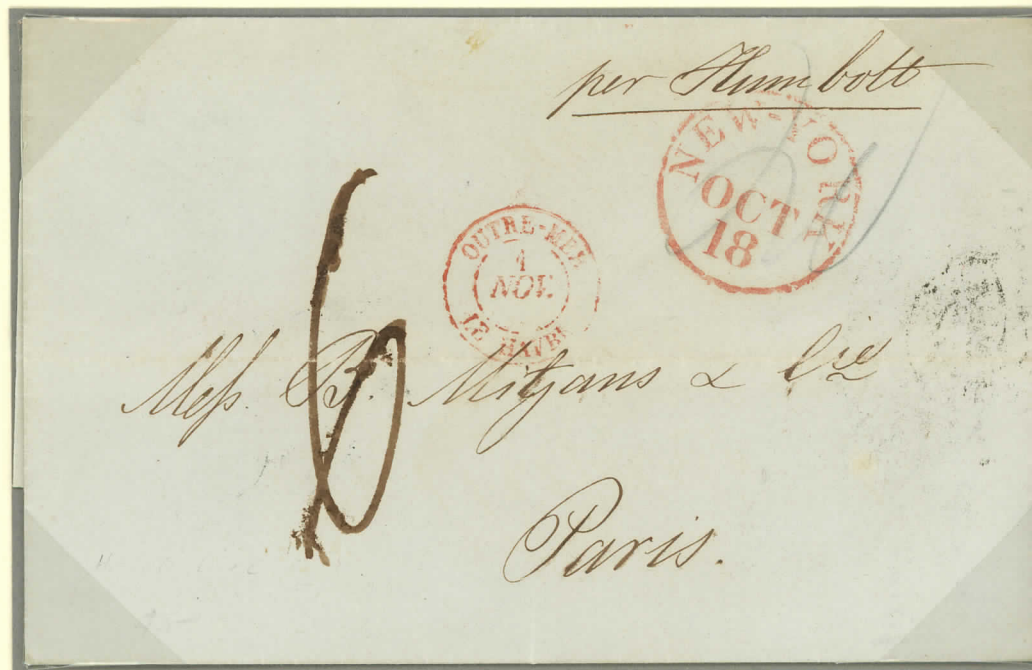 per Humbolt
NEW-YORK
OCT
18
OUTRE-MER
1
NOV.
LE HAVRE
6
Mess. B. Mitjans & Cie
Paris.